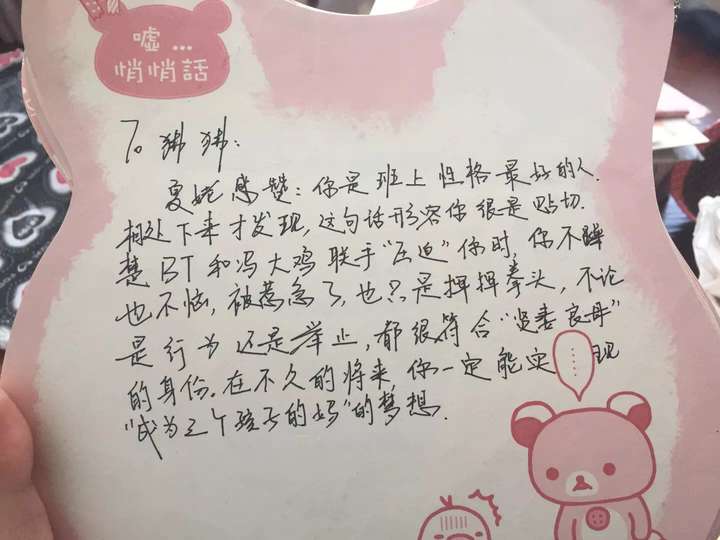 嘘...
悄悄話
To 狒狒:
夏姥感赞:你是班上性格最好的人.
相处下来才发现,这句话形容你很是贴切.
楚BT和冯大鸡联手“压迫”你时,你不躁
也不恼,被惹急了,也只是挥挥拳头,不论
是行为还是举止,都很符合“贤妻良母”
的身份.在不久的将来,你一定能实现
“成为三个孩子的妈”的梦想.
......